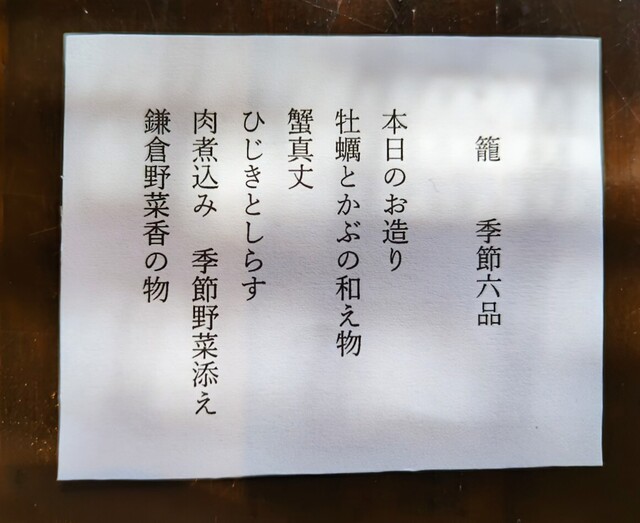 籠　季節六品
本日のお造り
牡蠣とかぶの和え物
蟹真丈
ひじきとしらす
肉煮込み　季節野菜添え
鎌倉野菜香の物